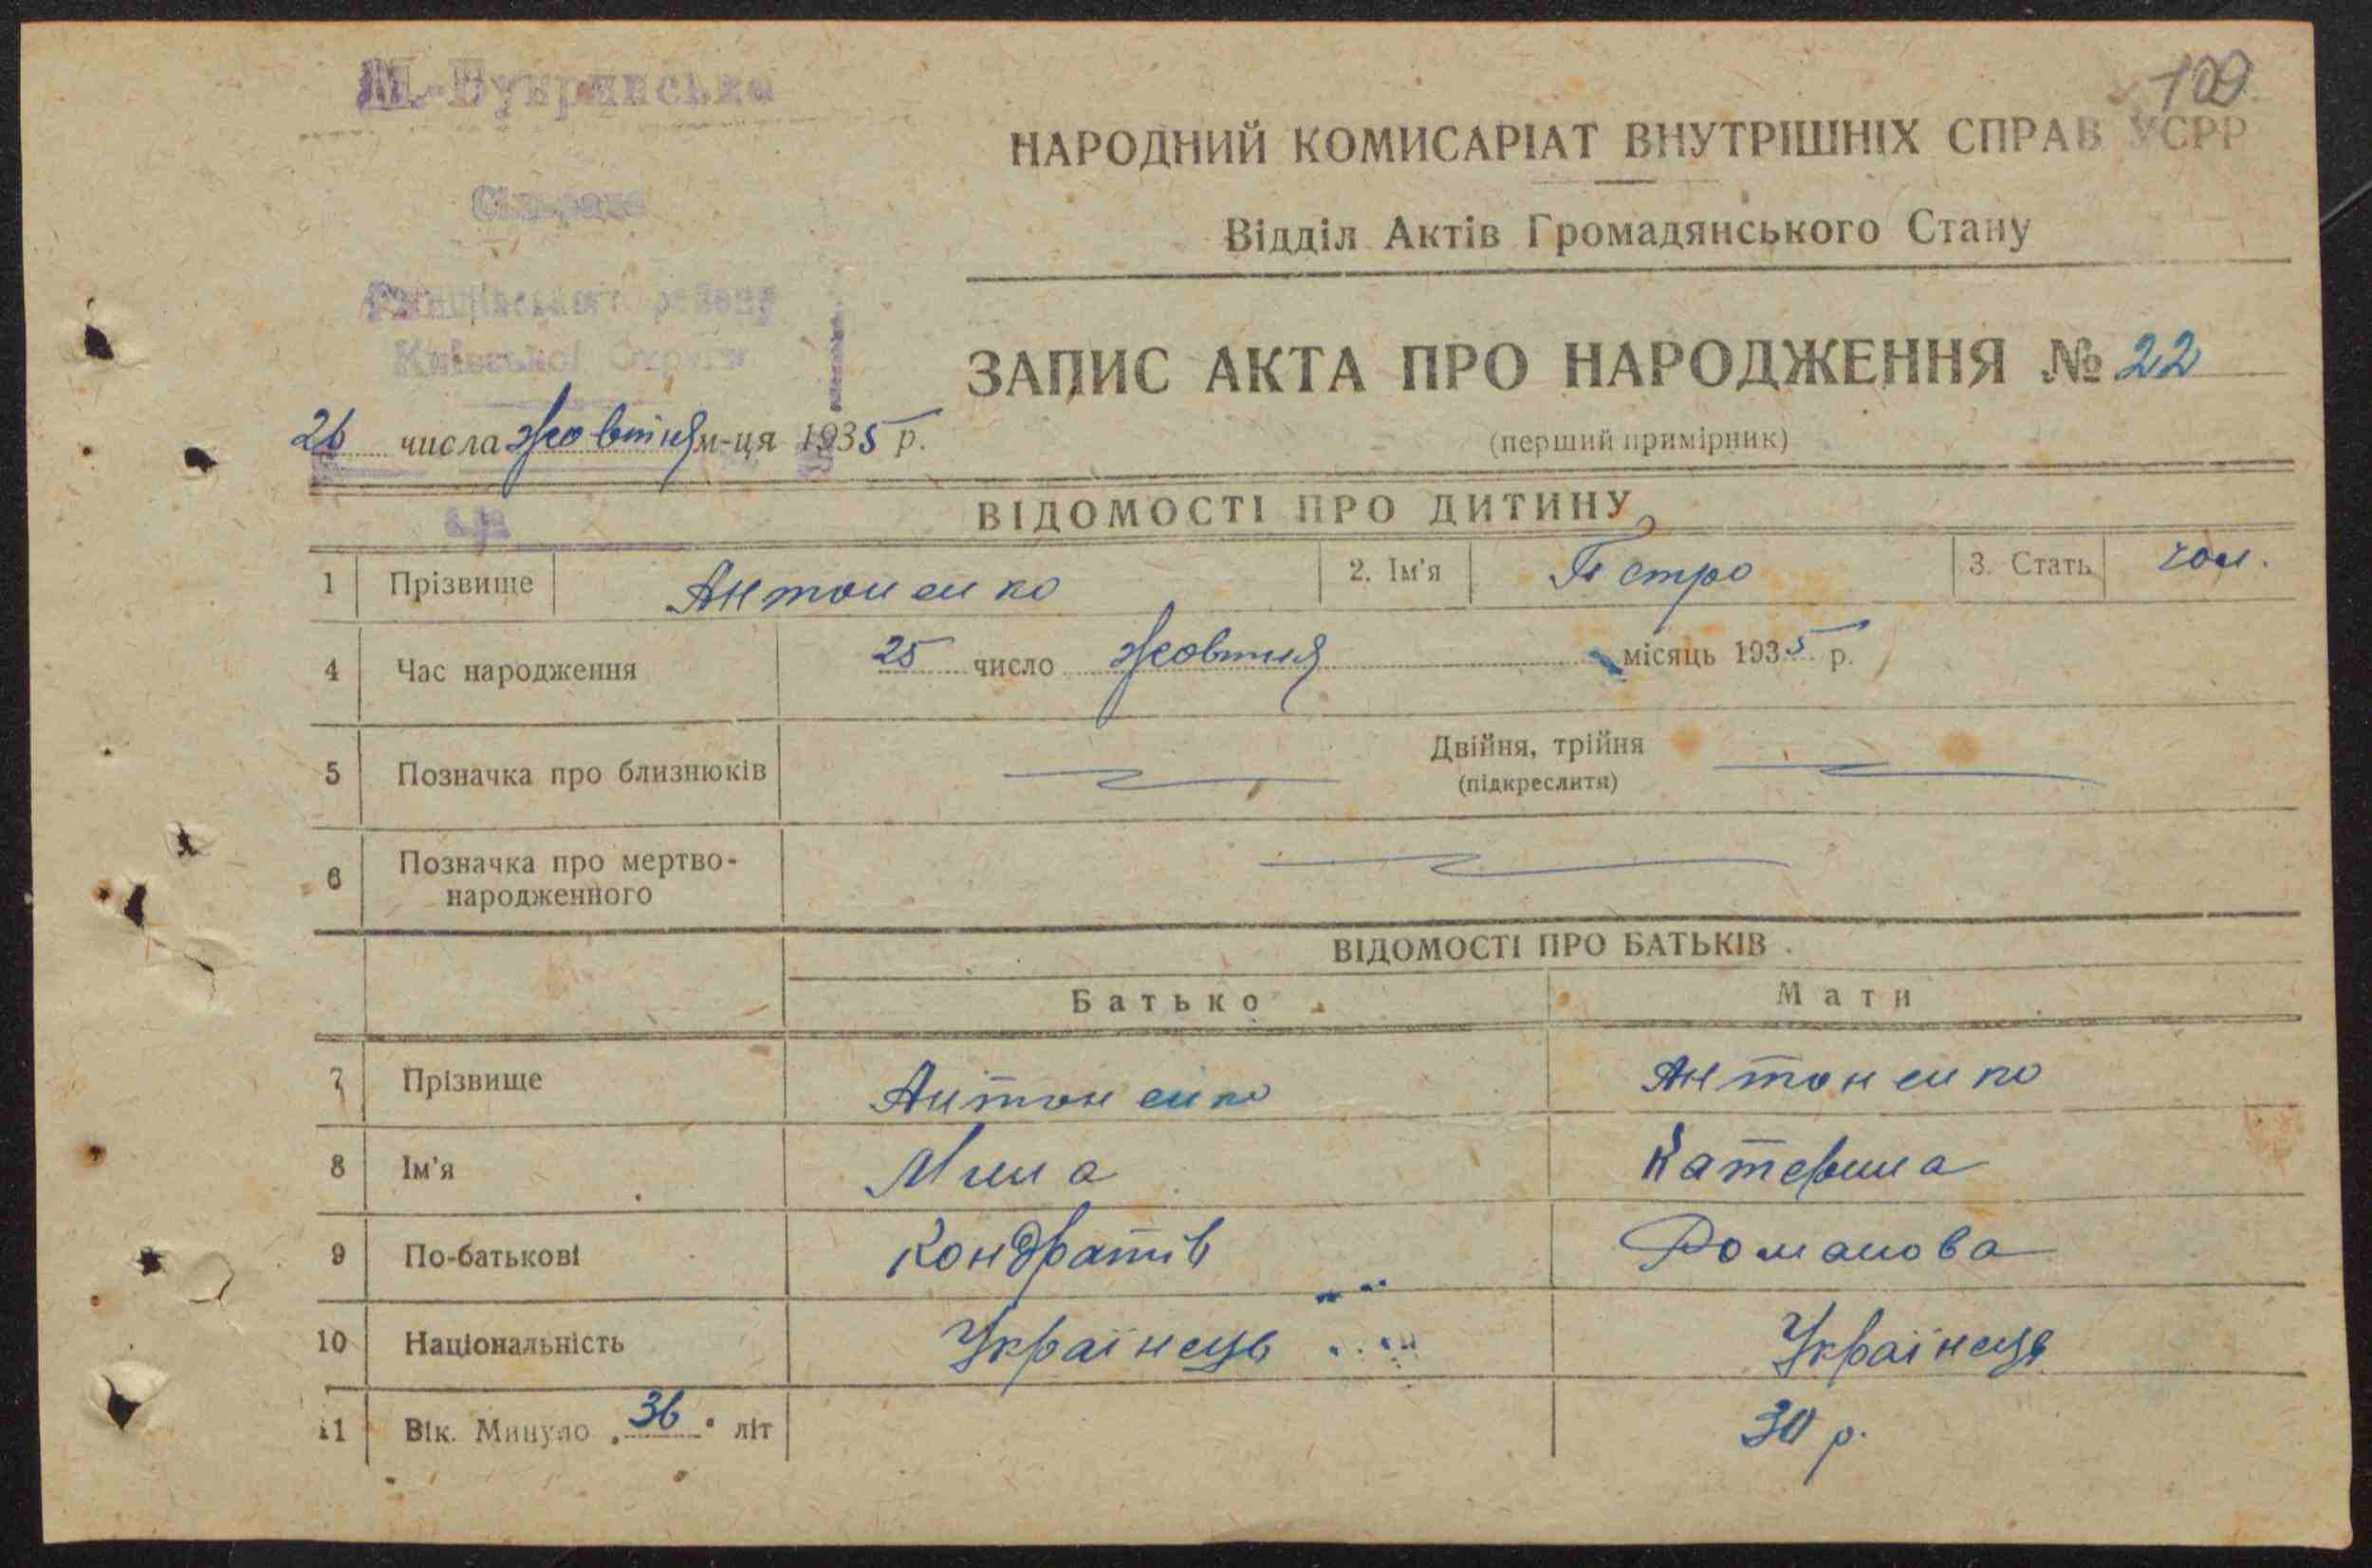 М.-Букринська
109
Сільрада
НАРОДНИЙ КОМИСАРІАТ ВНУТРІШНІХ СПРАВ УСРР
Відділ Актів Громадянського Стану
району
Київської Округи
ЗАПИС АКТА ПРО НАРОДЖЕННЯ № 22
26 числа жовтня м-ця 1935 р.
(перший примірник)
ВІДОМОСТІ ПРО ДИТИНУ
1 Прізвище Антоненко 2. Ім'я Петро 3. Стать чол.
4 Час народження 25 число жовтня місяць 1935 р.
5 Позначка про близнюків Двійня, трійня
(підкреслити)
6 Позначка про мертво-
народженного
ВІДОМОСТІ ПРО БАТЬКІВ
Батько Мати
7 Прізвище Антоненко Антоненко
8 Ім'я Мина Катерина
9 По-батькові Кондратів Романова
10 Національність Українець Українець
11 Вік. Минуло 36 літ 30 р.